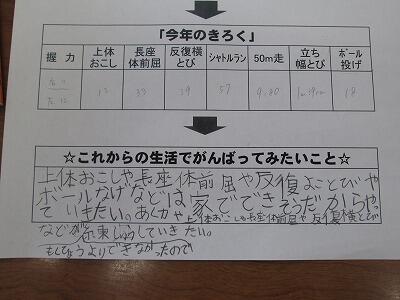 「今年のきろく」
握力 上体おこし 長座体前屈 反復横とび シャトルラン 50m走 立ち幅とび ボール投げ
右11 左12 13 33 39 57 9.80 1m39cm 18
☆これからの生活でがんばってみたいこと☆
上体おこしや長座体前屈や反復よことびや
ボールなげなどは家でできそうだからやっ
ていきたい。あくりょくや上体おこしや長座体前屈や反復横とび
などが
していきたい。
もくひょうよりできなかったので